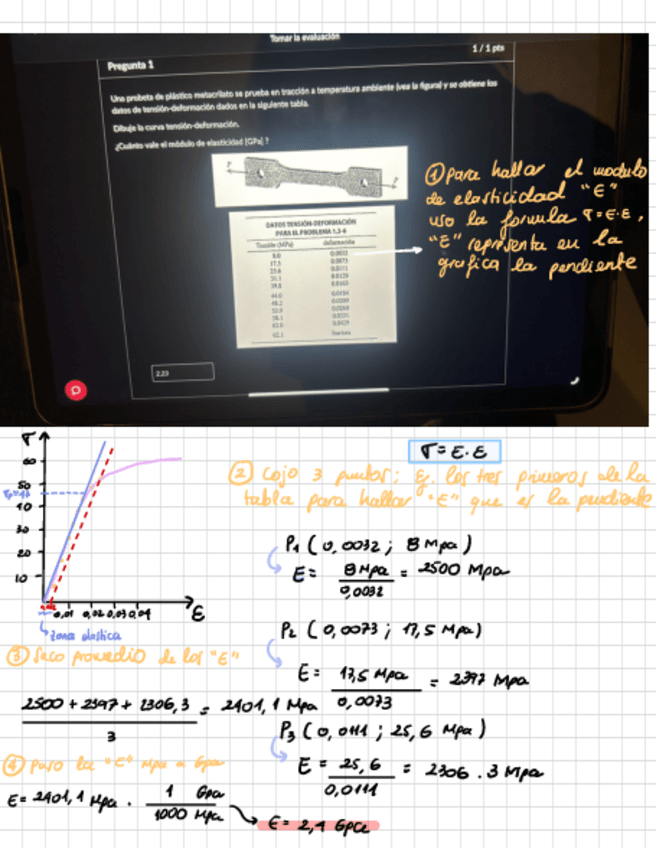 Tomar la evaluación
1 / 1 pts
Pregunta 1
Una probeta de plástico metacrilato se prueba en tracción a temperatura ambiente (vea la figura) y se obtiene los
datos de tensión-deformación dados en la siguiente tabla.
Dibuje la curva tensión-deformación.
¿Cuánto vale el módulo de elasticidad (GPa) ?
DATOS TENSIÓN-DEFORMACIÓN
PARA EL PROBLEMA 1.3-4
Tensión (MPa) deformación
8.0 0.0032
17.5 0.0073
25.6 0.0111
31.1 0.0129
39.8 0.0163
44.0 0.0184
48.2 0.0209
53.9 0.0260
58.1 0.0331
62.0 0.0429
62.1 fractura
2.23
① para hallar el modulo
de elasticidad "E"
uso la formula σ=E·ε,
"E" representa en la
grafica la pendiente
σ
60
50
40
30
20
10
0,01 0,02 0,03 0,04
ε
zona elastica
σ=E·ε
② Cojo 3 puntos; Ej. los tres primeros de la
tabla para hallar "E" que es la pendiente
P₁ (0,0032 ; 8 Mpa)
E = 8 Mpa / 0,0032 = 2500 Mpa
P₂ (0,0073 ; 17,5 Mpa)
E = 17,5 Mpa / 0,0073 = 2397 Mpa
P₃ (0,0111 ; 25,6 Mpa)
E = 25,6 / 0,0111 = 2306.3 Mpa
③ Saco promedio de los "E"
2500 + 2397 + 2306,3 / 3 = 2401,1 Mpa
④ Paso la "E" Mpa a Gpa
E = 2401,1 Mpa · 1 Gpa / 1000 Mpa
E = 2,4 Gpa